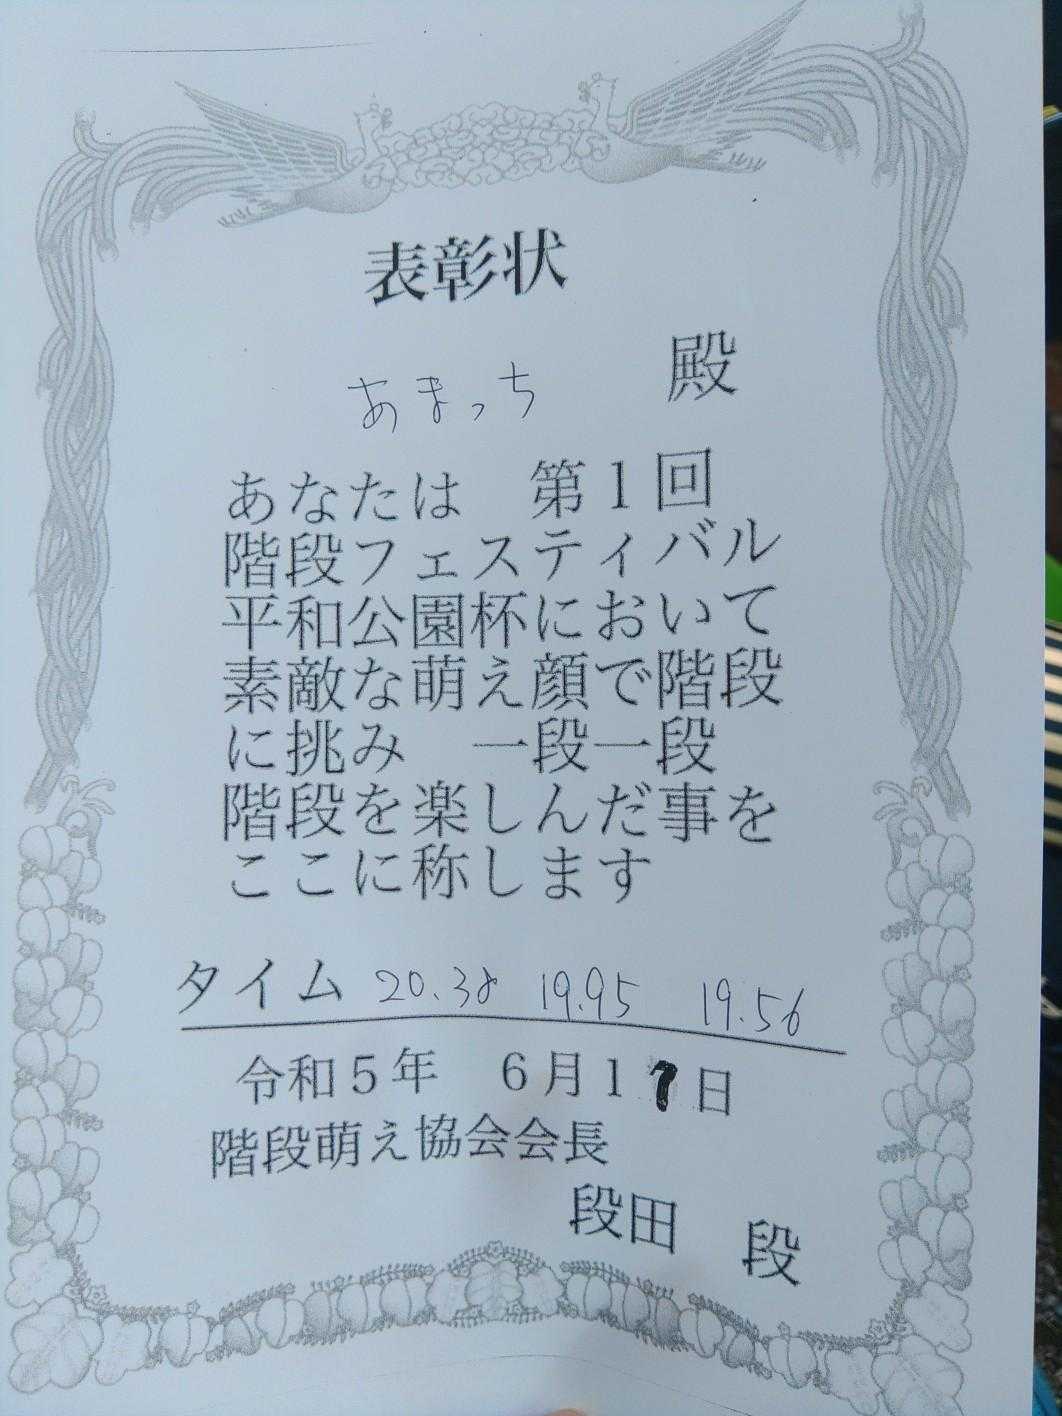 表彰状
あまっち 殿
あなたは 第1回
階段フェスティバル
平和公園杯において
素敵な萌え顔で階段
に挑み 一段一段
階段を楽しんだ事を
ここに称します
タイム 20.38 19.95 19.56
令和5年 6月17日
階段萌え協会会長
段田 段